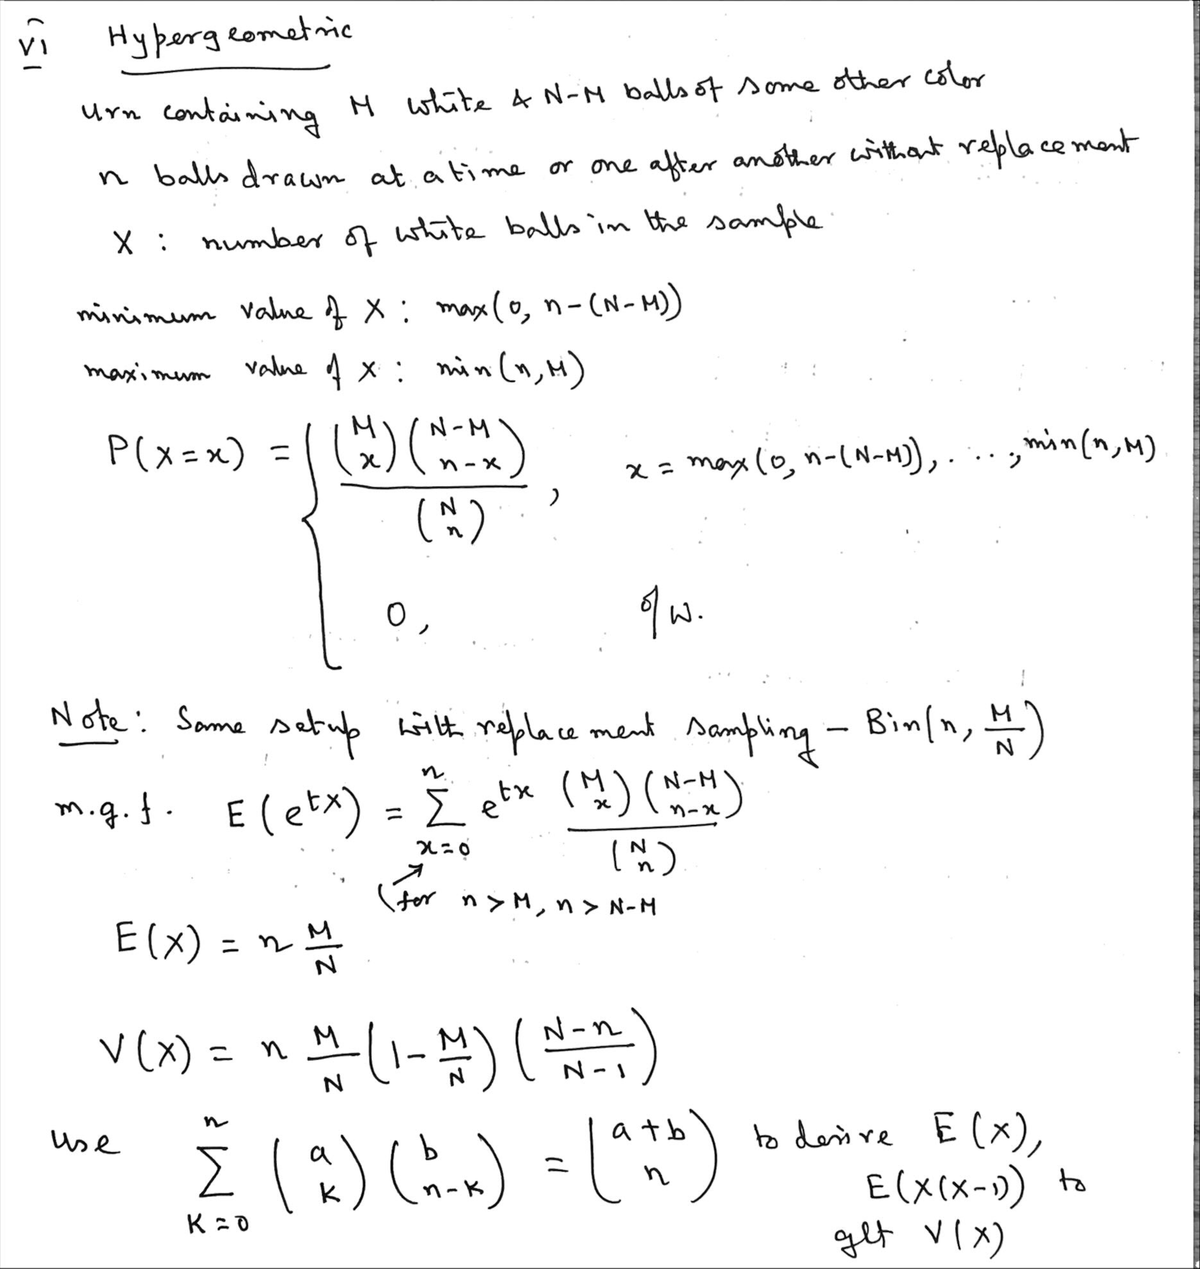 vi Hypergeometric
urn containing M white & N-M balls of some other color
n balls drawn at a time or one after another without replacement
X : number of white balls in the sample
minimum value of X : max(0, n-(N-M))
maximum value of X : min(n,M)
P(X=x) = { \frac{\binom{M}{x}\binom{N-M}{n-x}}{\binom{N}{n}}, x = max(0, n-(N-M)), ...., min(n,M)
0, o/w.
Note: Same setup with replacement sampling - Bin(n, \frac{M}{N})
m.g.f. E(e^{tX}) = \sum_{x=0}^{n} e^{tx} \frac{\binom{M}{x}\binom{N-M}{n-x}}{\binom{N}{n}}
(for n>M, n>N-M
E(X) = n \frac{M}{N}
V(X) = n \frac{M}{N}(1-\frac{M}{N})(\frac{N-n}{N-1})
use \sum_{K=0}^{n} \binom{a}{K}\binom{b}{n-K} = \binom{a+b}{n} to derive E(X),
E(X(X-1)) to
get V(X)